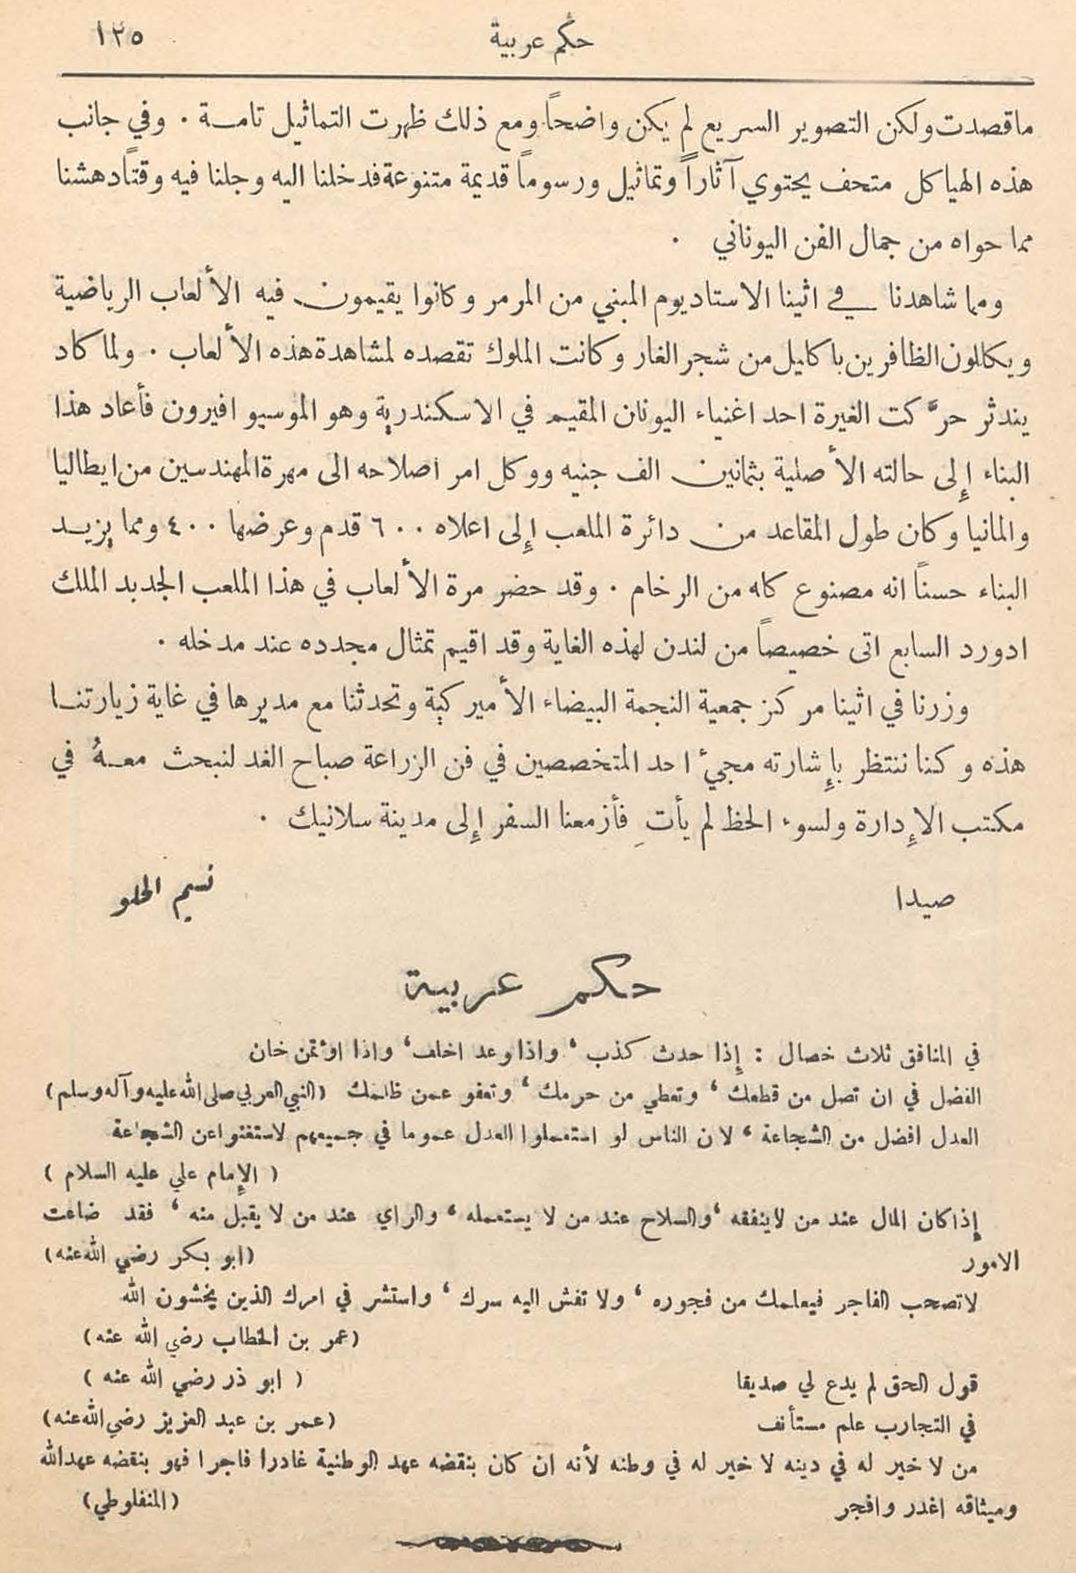 حكم عربية ١٢٥
ما قصدت ولكن التصوير السريع لم يكن واضحاً ومع ذلك ظهرت التماثيل تامــة . وفي جانب
هذه الهياكل متحف يحتوي آثاراً وتماثيل ورسوماً قديمة متنوعة فدخلنا اليه وجلنا فيه وقتاً دهشنا
مما حواه من جمال الفن اليوناني .
ومما شاهدنا في اثينا الاستاديوم المبني من المرمر وكانوا يقيمون فيه الألعاب الرياضية
ويكللون الظافرين باكاليل من شجر الغار وكانت الملوك تقصده لمشاهدة هذه الألعاب . ولما كاد
يندثر حرَّكت الغيرة احد اغنياء اليونان المقيم في الاسكندرية وهو الموسيو افيرون فأعاد هذا
البناء إلى حالته الأصلية بثمانين الف جنيه ووكل امر اصلاحه الى مهرة المهندسين من ايطاليا
والمانيا وكان طول المقاعد من دائرة الملعب إلى اعلاه ٦٠٠ قدم وعرضها ٤٠٠ ومما يزيــد
البناء حسناً انه مصنوع كله من الرخام . وقد حضر مرة الألعاب في هذا الملعب الجديد الملك
ادورد السابع اتى خصيصاً من لندن لهذه الغاية وقد اقيم تمثال مجدده عند مدخله .
وزرنا في اثينا مركز جمعية النجمة البيضاء الأميركية وتحدثنا مع مديرها في غاية زيارتنــا
هذه وكنا ننتظر بإشارته مجيءَ احد المتخصصين في فن الزراعة صباح الغد لنبحث معــهُ في
مكتب الإدارة ولسوء الحظ لم يأتِ فأزمعنا السفر إلى مدينة سلانيك .
صيدا نسيم الحلو
حكم عربية
في المنافق ثلاث خصال : إذا حدث كذب ، واذا وعد اخلف ، واذا اؤتمن خان
الفضل في ان تصل من قطعك ، وتعطي من حرمك ، وتعفو عمن ظلمك (النبي العربي صلى الله عليه وآله وسلم)
العدل افضل من الشجاعة ، لان الناس لو استعملوا العدل عموما في جميعهم لاستغنوا عن الشجاعة
( الإمام علي عليه السلام )
إذا كان المال عند من لا ينفقه ، والسلاح عند من لا يستعمله ، والراي عند من لا يقبل منه ، فقد ضاعت
الامور (ابو بكر رضي الله عنه)
لا تصحب الفاجر فيعلمك من فجوره ، ولا تفش اليه سرك ، واستشر في امرك الذين يخشون الله
(عمر بن الخطاب رضي الله عنه)
قول الحق لم يدع لي صديقا ( ابو ذر رضي الله عنه )
في التجارب علم مستأنف (عمر بن عبد العزيز رضي الله عنه)
من لا خير له في دينه لا خير له في وطنه لأنه ان كان بنقضه عهد الوطنية غادرا فاجرا فهو بنقضه عهد الله
وميثاقه اغدر وافجر (المنفلوطي)